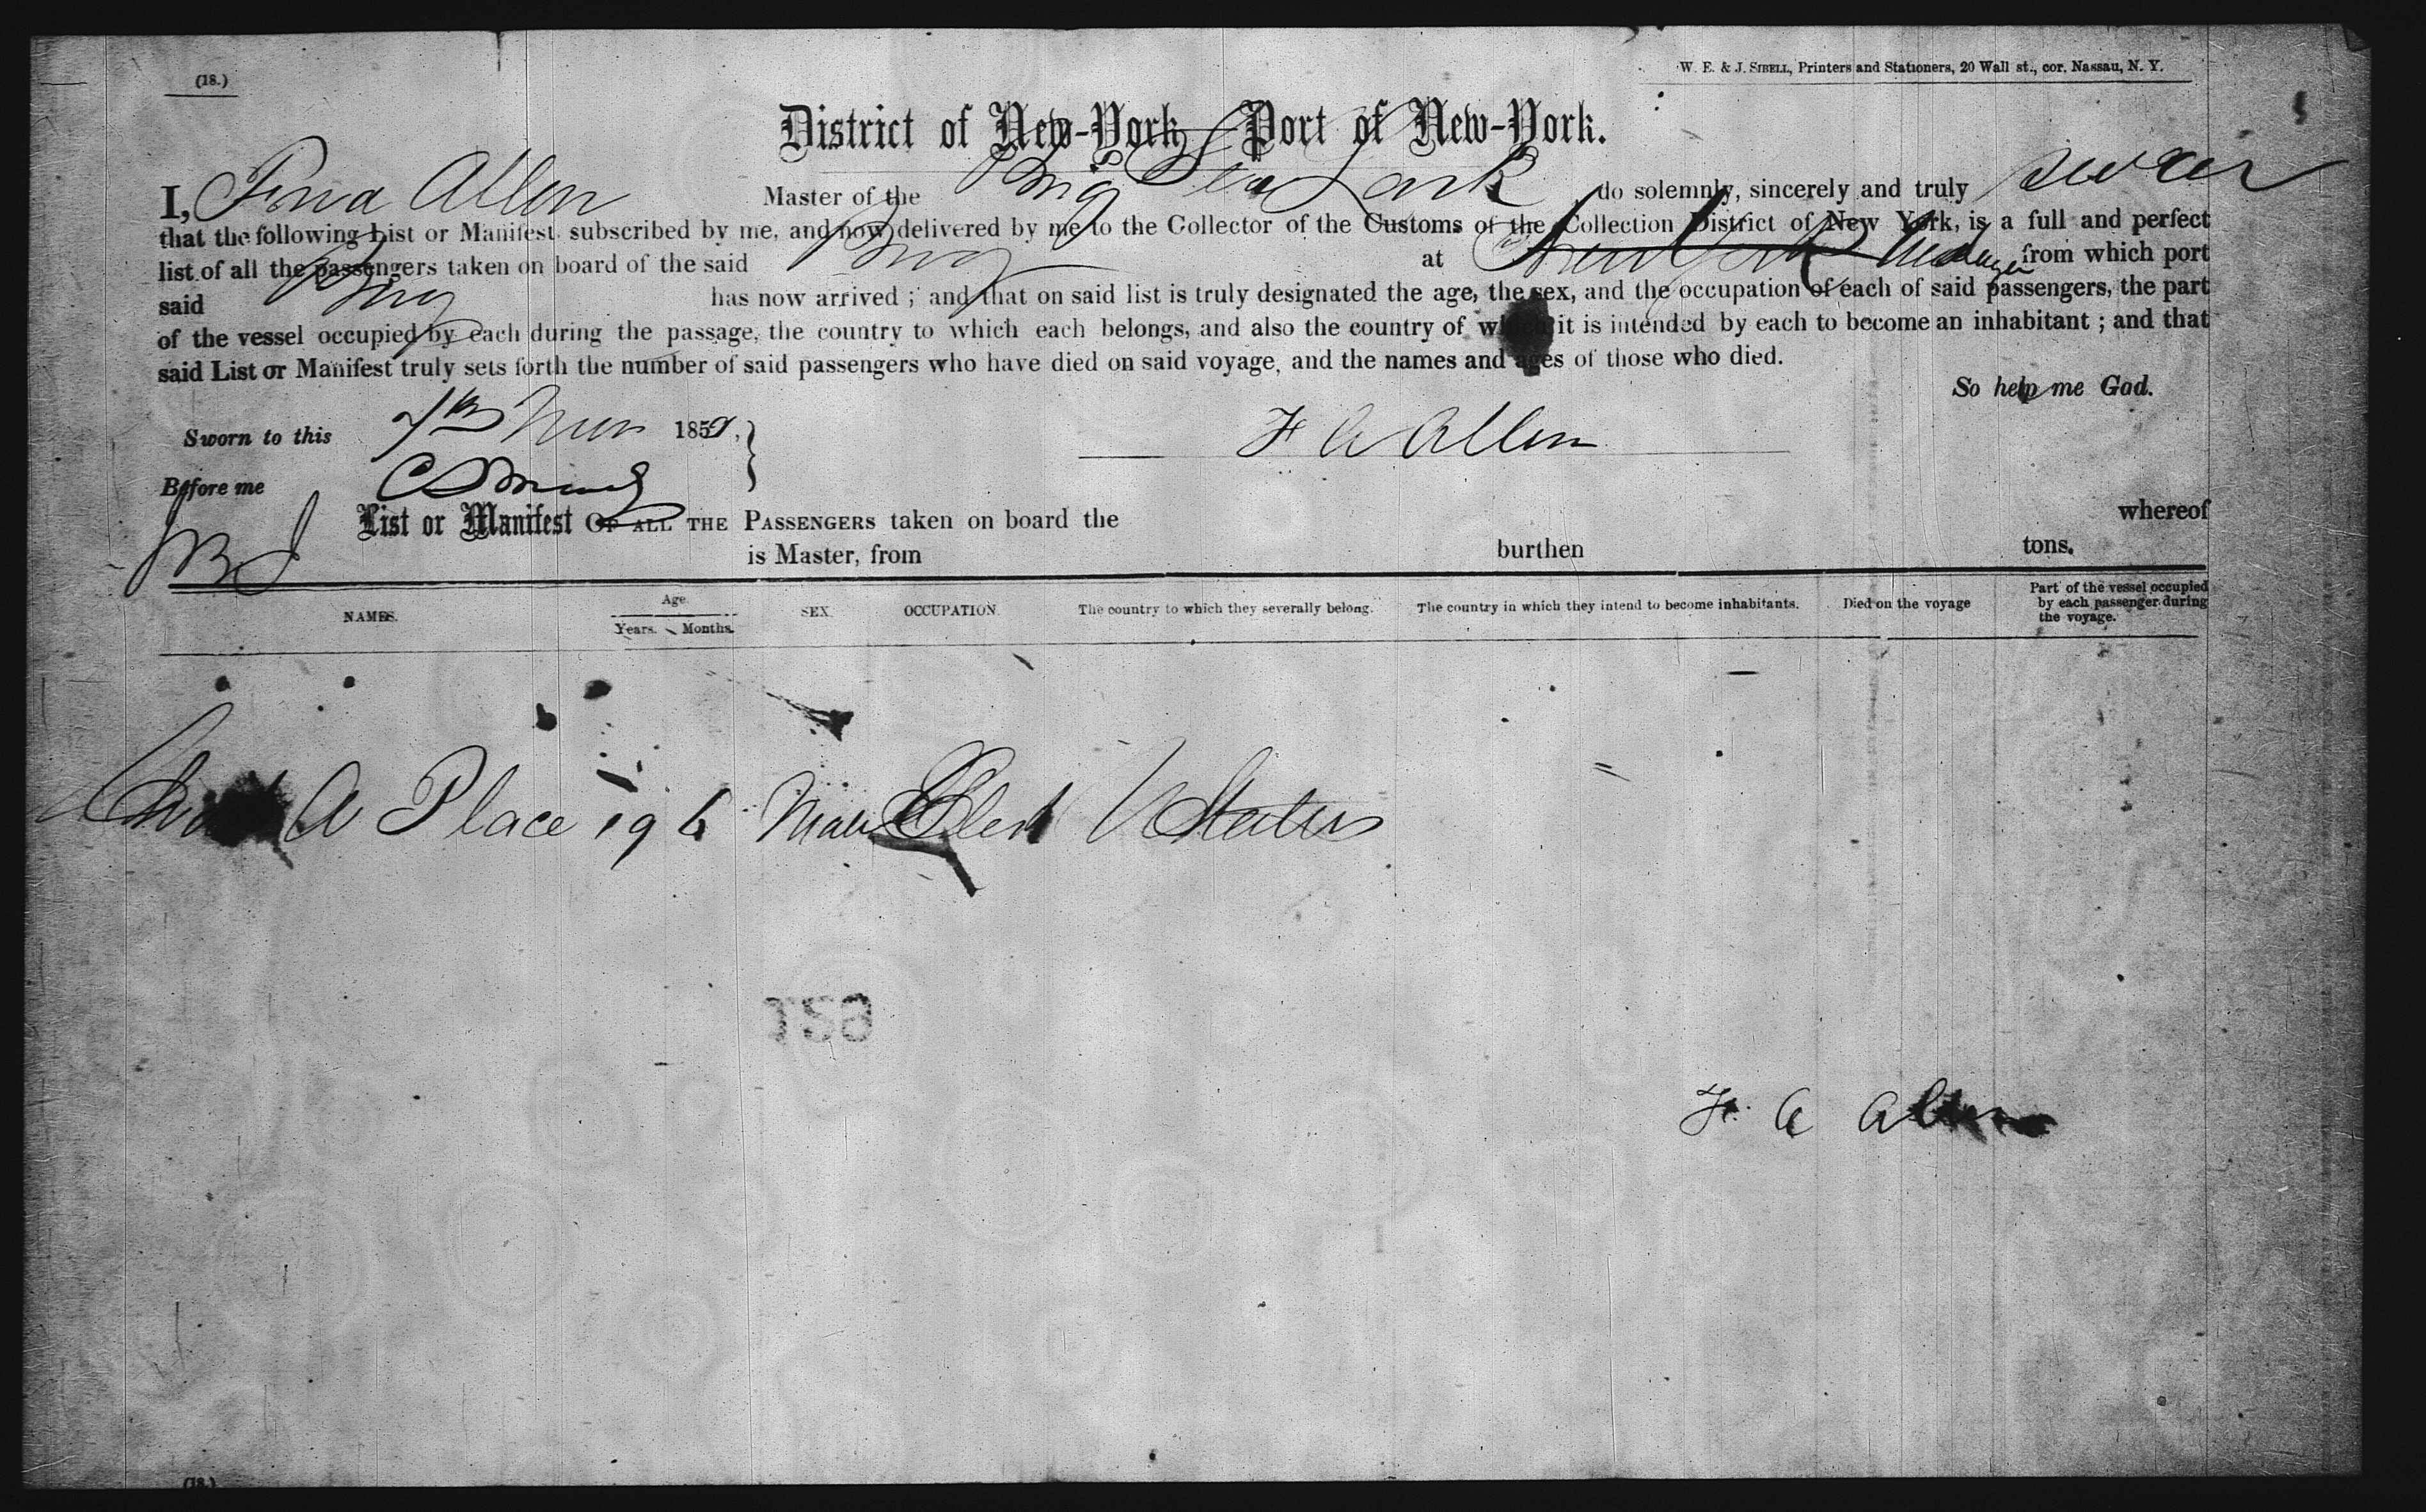 (18.)
W. E. & J. SIBELL, Printers and Stationers, 20 Wall st., cor. Nassau, N. Y.
District of New-York—Port of New-York.
I, Allen Master of the Brig Sea Lark do solemnly, sincerely and truly swear
that the following List or Manifest subscribed by me, and now delivered by me to the Collector of the Customs of the Collection District of New York, is a full and perfect
list of all the passengers taken on board of the said Brig at from which port
said Brig has now arrived ; and that on said list is truly designated the age, the sex, and the occupation of each of said passengers, the part
of the vessel occupied by each during the passage, the country to which each belongs, and also the country of which it is intended by each to become an inhabitant ; and that
said List or Manifest truly sets forth the number of said passengers who have died on said voyage, and the names and ages of those who died.
So help me God.
Sworn to this 7th 185
F A Allen
Before me
List or Manifest OF ALL THE PASSENGERS taken on board the whereof
is Master, from burthen tons.
NAMES. Age. Years. Months. SEX. OCCUPATION. The country to which they severally belong. The country in which they intend to become inhabitants. Died on the voyage Part of the vessel occupied by each passenger during the voyage.
A Place 19 6 Male Clerk U States
129
F. A Allen
(18.)